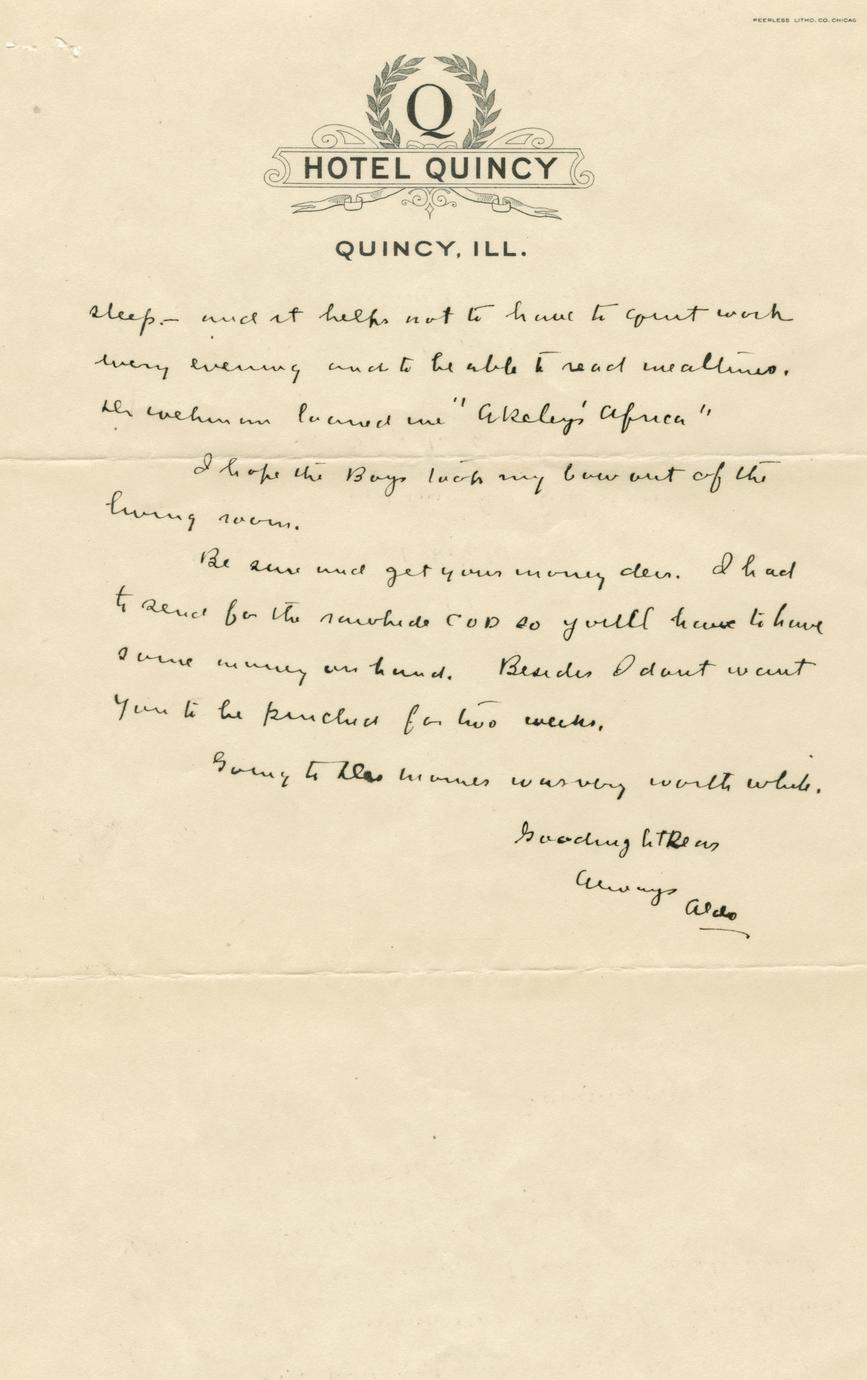 PEERLESS LITHO. CO. CHICAG
Q
HOTEL QUINCY
QUINCY, ILL.
sleep.— and it helps not to have to quit work
every evening and to be able to read mealtimes.
loaned me "Akeley's Africa"
I hope the Boys took my bow out of the
living room.
Be sure and get your money dear. I had
to send for the rawhide COD so you'll have to have
some money on hand. Besides I dont want
you to be pinched for two weeks.
Going to Des Moines was very worth while.
Goodnight Dear
Always
Aldo